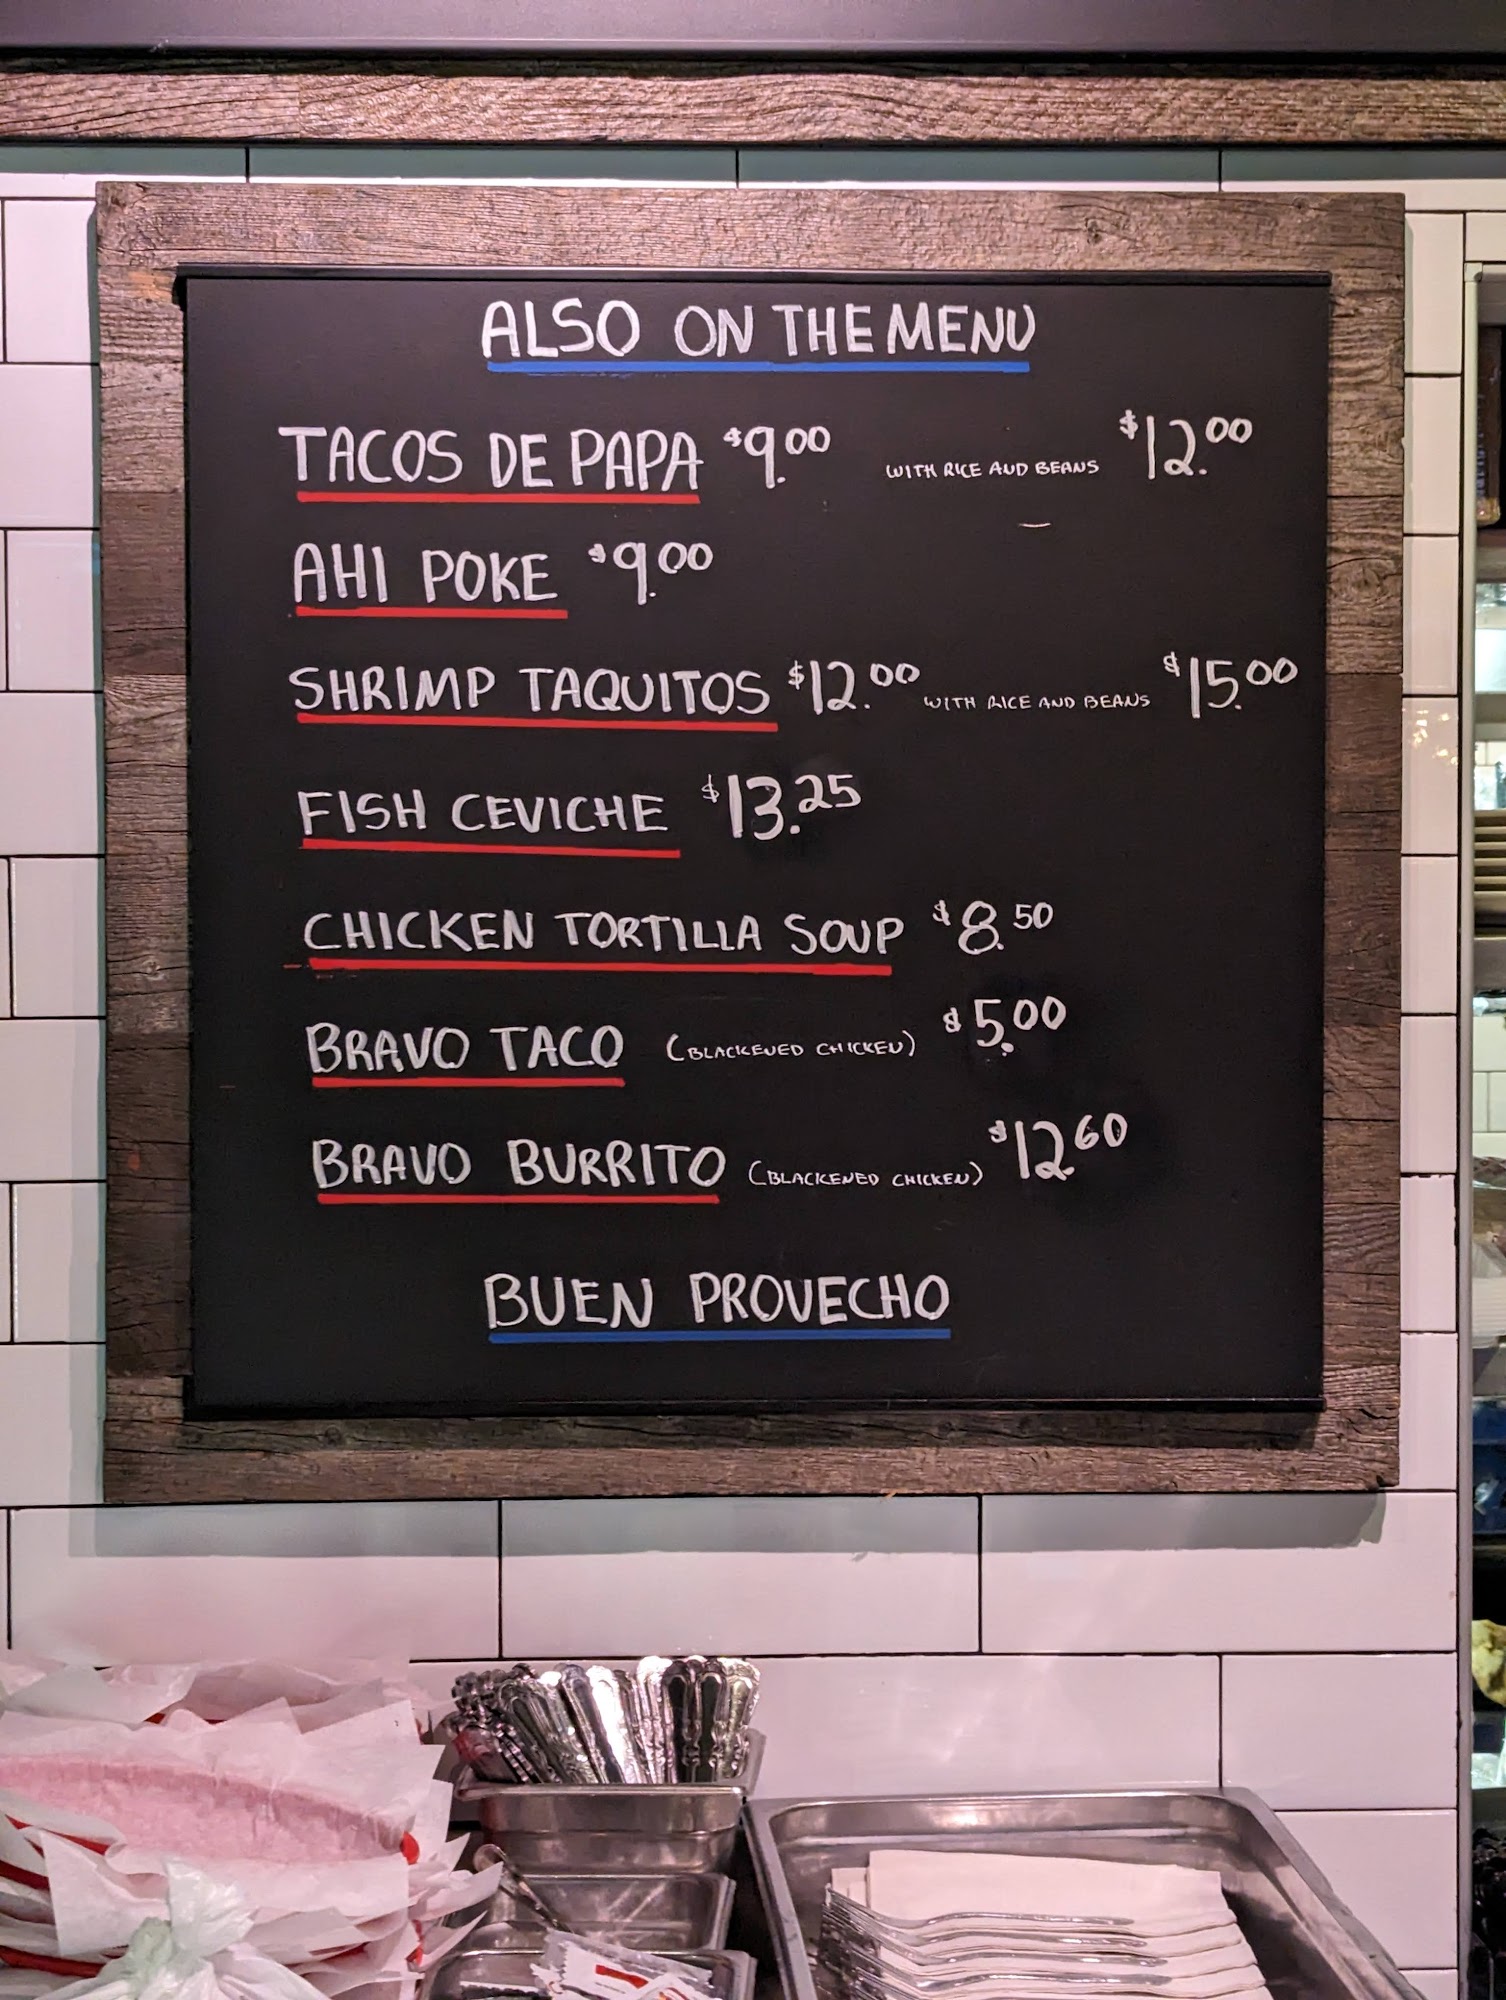 ALSO ON THE MENU
TACOS DE PAPA $9.00 WITH RICE AND BEANS $12.00
AHI POKE $9.00
SHRIMP TAQUITOS $12.00 WITH RICE AND BEANS $15.00
FISH CEVICHE $13.25
CHICKEN TORTILLA SOUP $8.50
BRAVO TACO (BLACKENED CHICKEN) $5.00
BRAVO BURRITO (BLACKENED CHICKEN) $12.60
BUEN PROVECHO